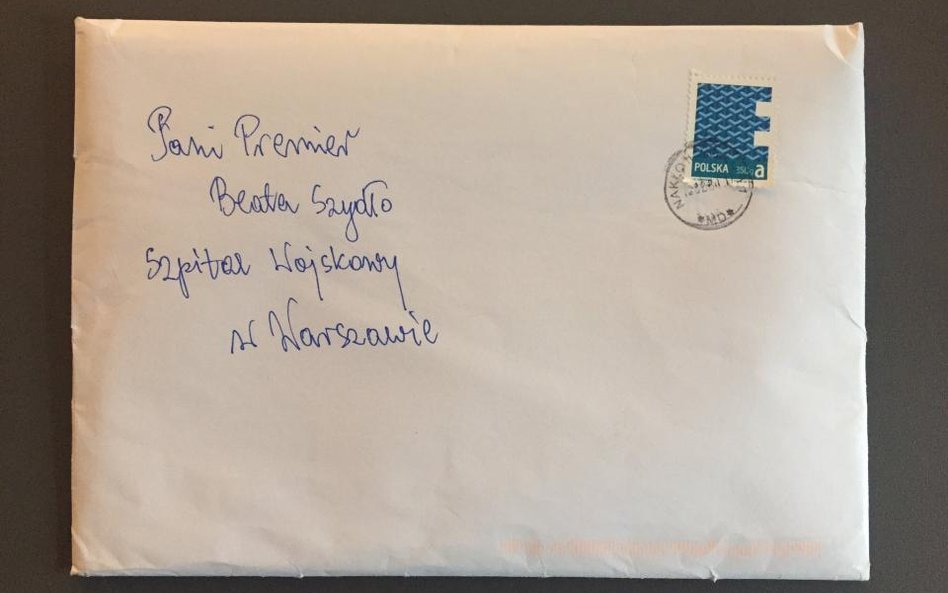 Pani Premier
Beata Szydło
Szpital Wojskowy
w Warszawie
POLSKA
a
NAKŁO
*MD*